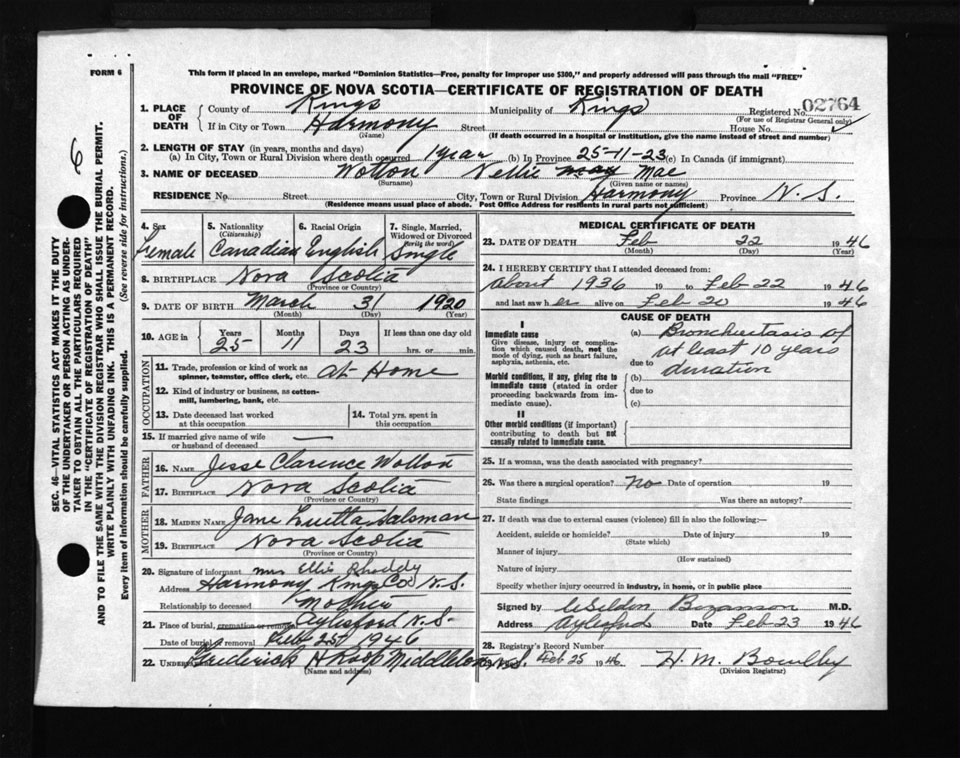 FORM 6
This form if placed in an envelope, marked "Dominion Statistics—Free, penalty for improper use $300," and properly addressed will pass through the mail "FREE"
PROVINCE OF NOVA SCOTIA—CERTIFICATE OF REGISTRATION OF DEATH
SEC. 46—VITAL STATISTICS ACT MAKES IT THE DUTY
OF THE UNDERTAKER OR PERSON ACTING AS UNDER-
TAKER TO OBTAIN ALL THE PARTICULARS REQUIRED
IN THE "CERTIFICATE OF REGISTRATION OF DEATH"
AND TO FILE THE SAME WITH THE DIVISION REGISTRAR WHO SHALL ISSUE THE BURIAL PERMIT.
WRITE PLAINLY WITH UNFADING INK. THIS IS A PERMANENT RECORD.
Every item of information should be carefully supplied. (See reverse side for instructions.)
6
1. PLACE OF DEATH
County of Kings Municipality of Kings Registered No. 02764
(For use of Registrar General only)
If in City or Town Harmony Street House No.
(Name) (If death occurred in a hospital or institution, give the name instead of street and number)
2. LENGTH OF STAY (in years, months and days)
(a) In City, Town or Rural Division where death occurred 1 year (b) In Province 25-11-23 (c) In Canada (if immigrant)
3. NAME OF DECEASED Wotton Nellie Mae
(Surname) (Given name or names)
RESIDENCE No. Street City, Town or Rural Division Harmony Province N.S.
(Residence means usual place of abode. Post Office Address for residents in rural parts not sufficient)
4. Sex Female
5. Nationality (Citizenship) Canadian
6. Racial Origin English
7. Single, Married, Widowed or Divorced (write the word) Single
8. BIRTHPLACE Nova Scotia
(Province or Country)
9. DATE OF BIRTH March 31 1920
(Month) (Day) (Year)
10. AGE in Years 25 Months 11 Days 23 If less than one day old
hrs. or min.
OCCUPATION
11. Trade, profession or kind of work as spinner, teamster, office clerk, etc. At Home
12. Kind of industry or business, as cotton-mill, lumbering, bank, etc.
13. Date deceased last worked at this occupation
14. Total yrs. spent in this occupation
15. If married give name of wife or husband of deceased —
FATHER
16. NAME Jesse Clarence Wotton
17. BIRTHPLACE Nova Scotia
(Province or Country)
MOTHER
18. MAIDEN NAME Jane Luetta Salsman
19. BIRTHPLACE Nova Scotia
(Province or Country)
20. Signature of informant Mrs Ellie Rhoddy
Address Harmony Kings Co N.S.
Relationship to deceased Mother
21. Place of burial, cremation or removal Aylesford N.S.
Date of burial, or removal Feb 25 1946
22. UNDERTAKER Frederick H Roop Middleton N.S.
(Name and address)
MEDICAL CERTIFICATE OF DEATH
23. DATE OF DEATH Feb 22 1946
(Month) (Day) (Year)
24. I HEREBY CERTIFY that I attended deceased from:
about 1936 19 to Feb 22 1946
and last saw her alive on Feb 20 1946
CAUSE OF DEATH
I
Immediate cause
Give disease, injury or complication which caused death, not the mode of dying, such as heart failure, asphyxia, asthenia, etc.
(a) Bronchiectasis of
at least 10 years
due to
duration
Morbid conditions, if any, giving rise to immediate cause (stated in order proceeding backwards from immediate cause).
(b)
due to
(c)
II
Other morbid conditions (if important) contributing to death but not causally related to immediate cause.
25. If a woman, was the death associated with pregnancy?
26. Was there a surgical operation? no Date of operation 19
State findings Was there an autopsy?
27. If death was due to external causes (violence) fill in also the following:—
Accident, suicide or homicide? Date of injury 19
(State which)
Manner of injury
(How sustained)
Nature of injury
Specify whether injury occurred in industry, in home, or in public place
Signed by Weldon Bezanson M.D.
Address Aylesford Date Feb 23 1946
28. Registrar's Record Number
Feb 25 1946 H. M. Bowlby
(Division Registrar)